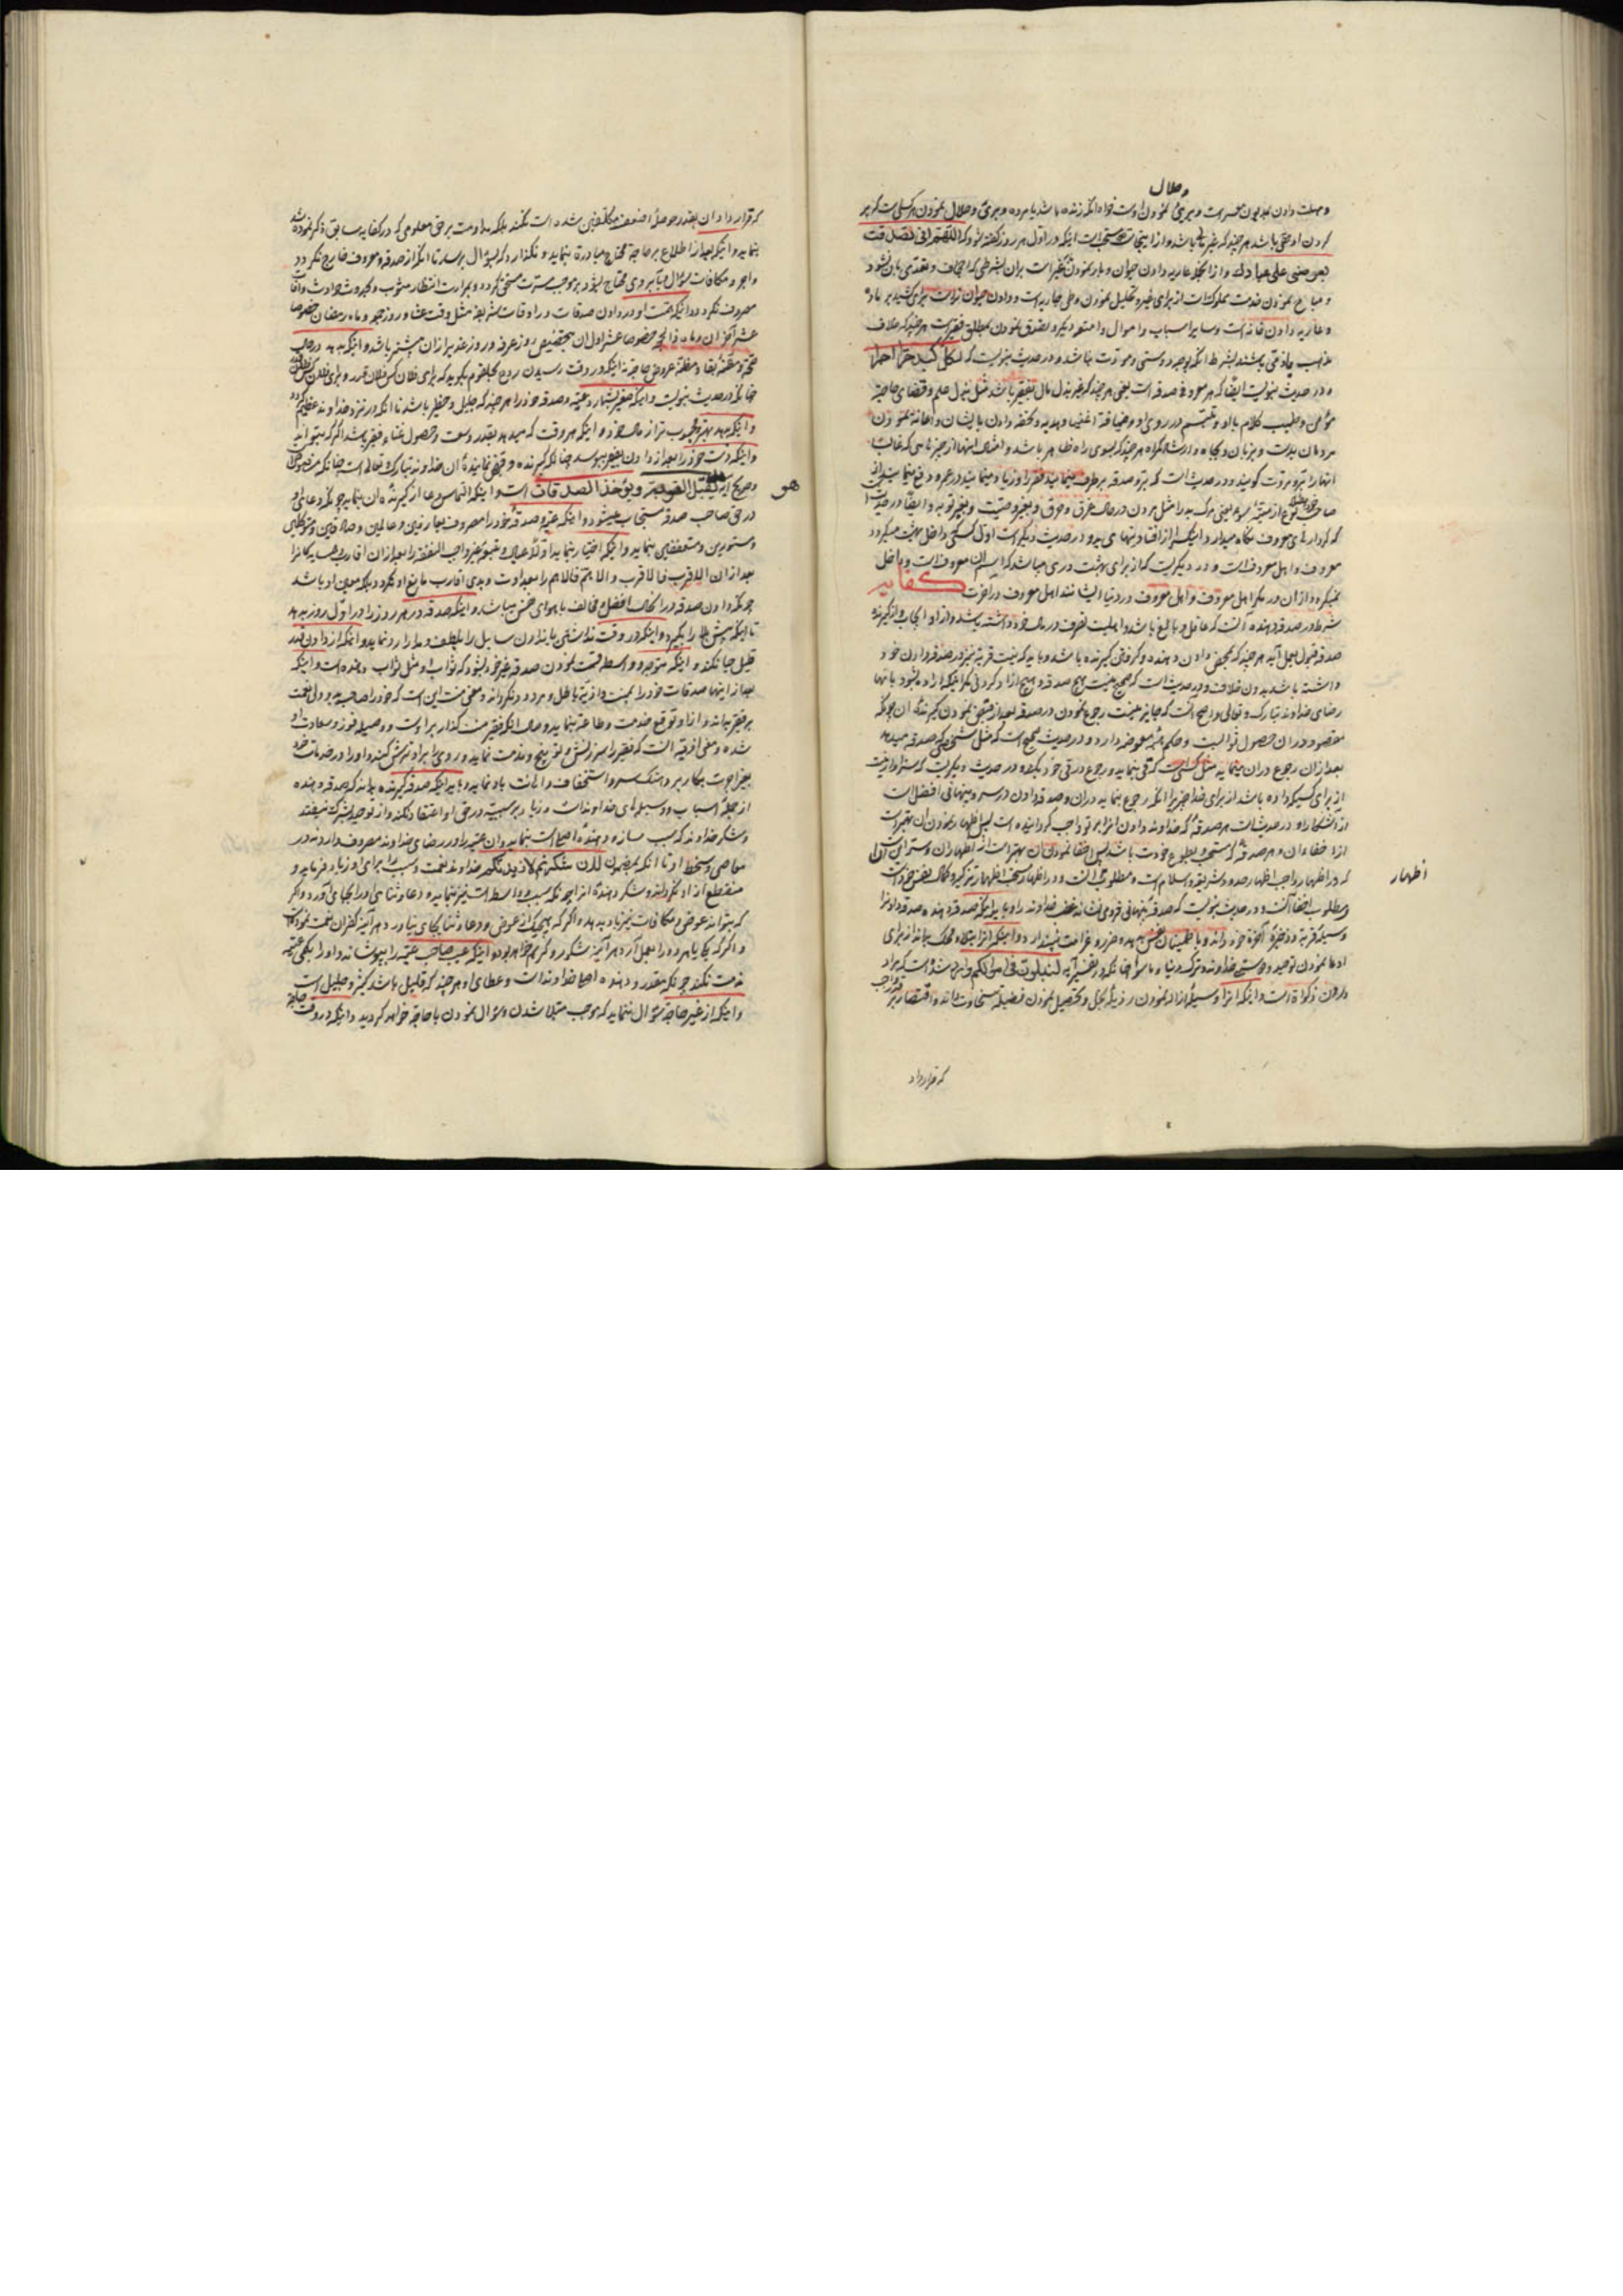 حلال
و مهلت دادن مدیون معسر است و بری نمودن اوست خواه انکه زنده باشد یا مرده و بری و حلال نمودن هر کسی است که بر
کردن او حقی باشد هر چند که غیر مالی باشد و از اینجاست مستحب است اینکه در اول هر روز گفته شود که اللهم انی تصدقت
بعرضی علی عبادك و از انجمله عاریه دادن حیوان و بار نمودن غیر است بران بشرطی که اجحاف و تعدی بان نشود
و مباح نمودن خدمت مملوک است از برای غیر و تحلیل نمودن وطی جاریه است و دادن حیوان نر است برای کشیدن بر ماده
و عاریه دادن خانه است و سایر اسباب و اموال و امتعه دیگر و تصدق نمودن بمطلق فقیر است هر چند که خلاف
مذهب یا ذمی باشند بشرط انکه بوجه دوستی و مودت نباشد و در حدیث نبویست که لکل کبد حرا اجر
و در حدیث نبویست ایضا که هر معروف صدقه است یعنی هر چند که غیر بذل مال بفقیر باشد مثل بذل علم و قضای حاجت
مؤمن و طیب کلام با او و تبسم در روی او و ضیافت اغنیا و هدیه و تحفه دادن بایشان و اعانه نمودن
مردمان بدست و بزبان و بجاه و ارشاد گمراه هر چند که بسوی راه ظاهر باشد و
انها را بر و مروت گویند و در حدیث است که بر و صدقه بر طرف مینمایند فقر را و زیاد مینمایند در عمر و دفع مینمایند از
صاحب خود هفتاد نوع از میتة سوء یعنی مرگ بد را مثل مردن در حالت غرق و حرق و بغیر وصیت و بغیر توبه و ایضا در حدیث است
که کردارهای معروف نگاه میدارد اینکس را از افتادنهای بد و در حدیث دیگر است اول کسی که داخل بهشت میگردد
معروف و اهل معروف است و در دیگریست که از برای بهشت دری میباشد که اسم ان معروف است و داخل
نمیگردد از ان در مگر اهل معروف و اهل معروف در دنیا ایشانند اهل معروف در آخرت کفایه
شرط در صدقه دهنده آنست که عاقل و بالغ باشد و اهلیت تصرف در مال خود داشته باشد و از او ایجاب و از گیرنده
صدقه قبول بعمل آید هر چند که بمحض دادن دهنده و گرفتن گیرنده باشد و باید که نیت قربة نیز در صدقه دادن خود
داشته باشد بدون خلاف و در حدیث است که صحیح نیست هیچ صدقه و هیچ ازاد کردنی مگر اینکه اراده بشود بانها
رضای خداوند تبارک و تعالی و اصح انست که جایز نیست رجوع نمودن در صدقه بعد از قبض نمودن گیرنده ان چونکه
مقصود در ان حصول ثوابست و حکم معوضه دارد و در حدیث صحیح است که مثل شخصی که صدقه میدهد
بعد از ان رجوع در ان مینماید مثل کسی است که قی بنماید و رجوع در قی خود بکند و در حدیث دیگریست که سزاوار نیست
از برای کسیکه داده باشد از برای خدا چیزیرا انکه رجوع بنماید در ان و صدقه دادن در سر و پنهانی افضل است
از اشکارا و در حدیث است هر صدقهٔ که خداوند دادن انرا بر تو واجب گردانیده است پس اظهار نمودن ان بهتر است
از اخفاء ان و هر صدقه که مستحب و بطوع خودت باشد پس اخفا نمودن ان بهتر است از اظهار ان و سر این آنست
که در اظهار واجب اظهار حدود شریفه و اسلام است و مطلوب است و در اظهار مستحب اظهار تزکیه و کمال نفس خود است
و مطلوب اخفا آنست و در حدیث نبویست که صدقه پنهانی فرو می نشاند غضب خداوند را و باید اینکه صدقه دهنده صدقه دادن را
وسیله قربة و ذخیرهٔ آخرة خود داند و باطمینان نفس بدهد و ضرر و غرامت نپندارد و اینکه انرا ابتلاء و محک بداند از برای
ادعا نمودن توحید و دوستی خداوند و ترک دنیا و ماسوا چنانکه در تفسیر آیه لتبلون فی اموالکم وارد شده است که مراد
دادن زکوة است و اینکه انرا وسیله ازاله نمودن رذیلهٔ بخل و تحصیل نمودن فضیلة سخاوت بداند و اقتصار بر قدر واجب
اظهار
که قرار داد
که قرار دادان بقدر حوصله اضعف مکلفین شده است نکند بلکه مداومت بر حق معلومی که در کفایه سابق ذکر نموده شد
بنماید و اینکه بعد از اطلاع بر حاجة محتاج مبادرة بنماید و نگذارد که بسؤال برسد تا انکه از صدقه و معروف خارج نگردد
و اجر و مکافات سؤال و آبروی محتاج نشود و موجب مسرت مستحق گردد و بمرارت انتظار مشوب و بکدورت حوادث و آفات
مصروف نگردد و اینکه همت او در دادن صدقات در اوقات شریفه مثل وقت عشا و روز جمعه و ماه رمضان خصوصا
عشر آخر ان و ماه ذالحجه خصوصا عشر اول ان بتخصیص روز عرفه و روز غدیر ازان بیشتر باشد و اینکه بدهد در حالت
صحة و مظنه بقا و مظنه عروض حاجة نه اینکه در وقت رسیدن روح بحلقوم بگوید که برای فلان کس فلان قدر و برای فلان کس فلان
چنانکه در حدیث نبویست و اینکه صغیر بشمارد عطیه و صدقه خود را هر چند که جلیل و خطیر باشد تا انکه در نزد خداوند عظیم گردد
و اینکه بدهد بهتر و محبوب تر از مال خود و اینکه هر وقت که میدهد بقدر وسعت و حصول غناء فقیر باشد اگر که بتواند
و اینکه دست خود را بعد از دادن بفقیر ببوسد چنانکه گیرنده و قبض نمایندهٔ ان خداوند تبارک و تعالی است چنانکه منصوص
و صریح آیه هو یقبل التوبة و یؤخذ الصدقات است و اینکه التماس دعا از گیرندهٔ ان بنماید چونکه دعای او
در حق صاحب صدقه مستجاب میشود و اینکه بر و صدقه خود را مصروف بعارفین و عالمین و صادقین و متوکلین
و مستورین و متعففین بنماید
بعد از ان الاقرب فالاقرب و الاهم فالاهم را معداوت و بدی اقارب مانع او نگردد بلکه معین او باشد
چونکه دادن صدقه در انحالت افضل و مخالف با هوای نفس میباشد و اینکه صدقه در هر روز را در اول روز بدهد
قلیل حیا نکند و اینکه متوجه و واسطه قسمت نمودن صدقه غیر خود بشود که ثواب او مثل ثواب دهنده است و اینکه
بعد از اینها صدقات خود را بمنت و اذیة باطل و مردود نگرداند و معنی منت این است که خود را صاحب ید و ولی نعمت
بر فقیر بداند و از او توقع خدمت و طاعة بنماید و حال انکه فقیر منت گذار بر اوست و وصیله فوز و سعادت او
شده و معنی اذیة انست که فقیر را سرزنش و توبیخ و مذمت نماید و روی را بر او ترش کند و او را در خدمات خود
بغیر اجرت بکار برد و هتک ستر و استخفاف و اهانت باو نماید و باید اینکه صدقه گیرنده بداند که صدقه دهنده
از جملهٔ اسباب و وسیلهای خداونداست و زیاد بر سببیة در حق او اعتقاد نکند و از توحید بشرک نیفتد
و شکر خداوند که سبب سازه و دهندهٔ اصلی است بنماید و ان عطیه را در رضای خداوند مصروف دارد نه در
معاصی و سخط او تا انکه بمضمون لئن شکرتم لازیدنکم خداوند نعمت و سبب را برای او زیاد فرماید و
منقطع از او نگرداند و شکر دهندهٔ انرا چونکه سبب و واسطه است نیز بنماید و دعا و ثنای او را بجای آورد و اگر
که بتواند عوض و مکافات نیز باو بدهد و اگر که هیچیک از عوض و دعا و ثنا بجای نیاورد هر آینه کفران نعمت نموده است
و اگر که یکی یا هر دو را بعمل آرد هر آینه شکور و کریم خواهد بود و اینکه عیب صاحب عطیه را بپوشاند و او را بکمی عطیه
مذمت نکند چونکه مقدر و دهنده اصلی خداونداست و عطای او هر چند که قلیل باشد کثیر و جلیل است
و اینکه از غیر حاجة سؤال ننماید که موجب مبتلا شدن و سؤال نمودن با حاجة خواهد گردید و اینکه در وقت حاجة
هو